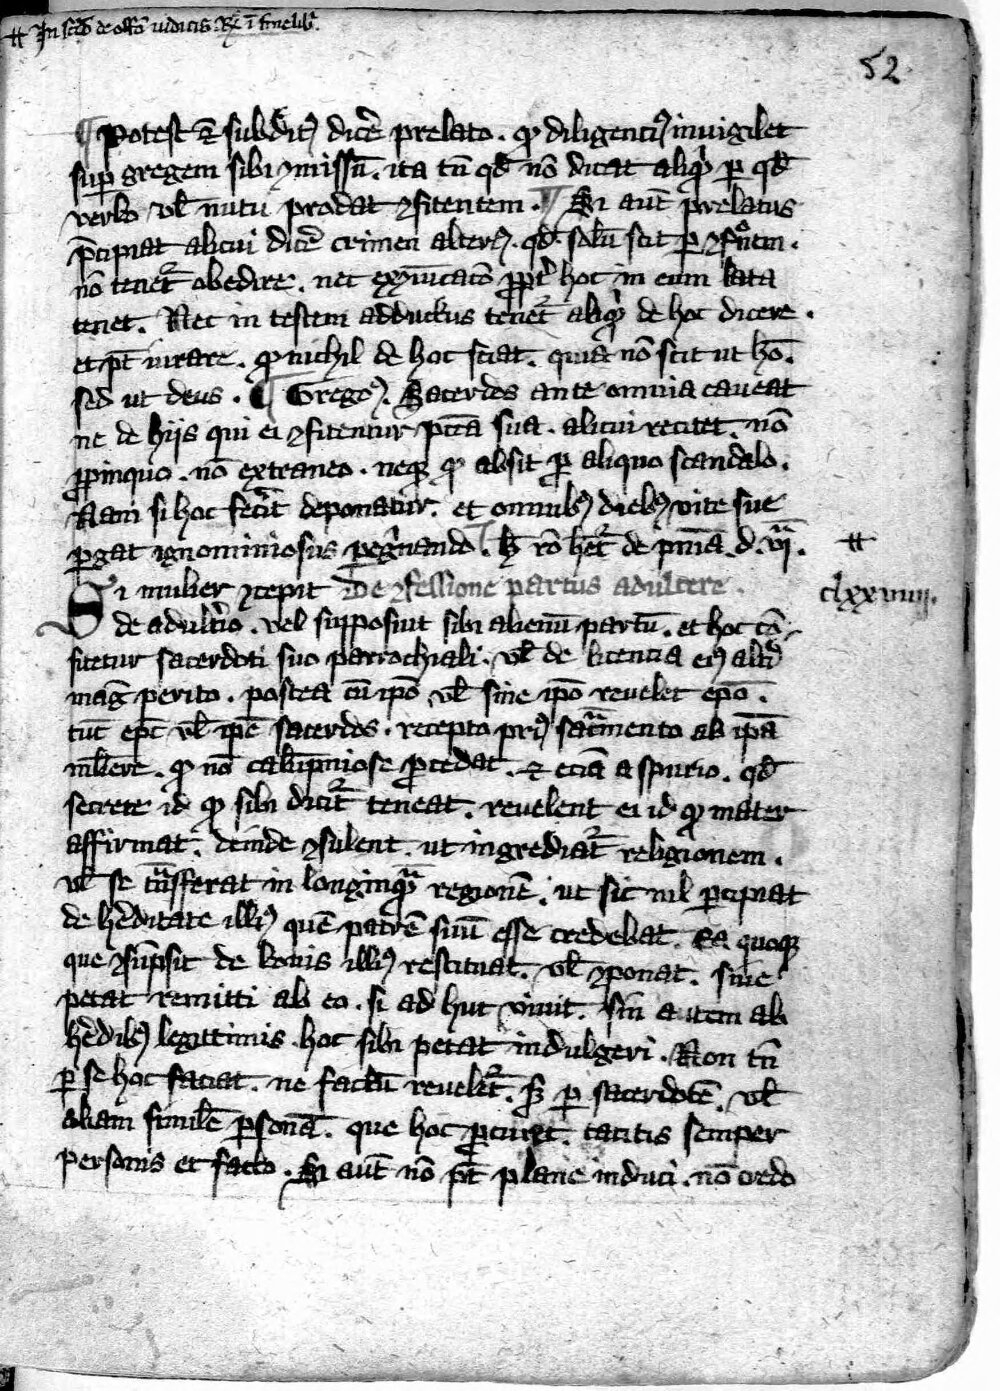 ⌗ Jn sc̄do de offō iudicis. R̄x ī fine lib̕.
52
¶ Potest ⁊ subdit᷒ dicē prelato. qꝫ diligenti᷒ inuigilet
suꝑ gregem sibi ꝯmissū. ita tn̄ qđ nō dicat aliqͥd ꝑ qđ
verbo vl̄ nutu prodat ꝯfitentem. ¶ Si aut̄ prelatus
p̄cipiat alicui dicē crimen alteri᷒. qđ solū scit ꝑ ꝯfōnem.
nō tenet᷑ obedire. nec exꝯīcatō ꝓpt̕ hoc in eum lata
tenet. Nec in testem adductus tenet᷑ aliqͥd de hoc dicere.
et pt̄ iurare. qꝫ nichil de hoc sciat. quia nō scit ut hō.
sed ut deus. ¶ Grego᷒. Sacerdos ante omnia caueat
ne de hijs qui ei ꝯfitentur pctā sua. alicui recitet. nō
ꝓpinquo. nō extraneo. neqꝫ qꝫ absit ꝑ aliquo scandalo.
Nam si hoc fecit̕ deponatur. et omnibꝫ diebꝫ vite sue
ꝑgat ignominiosus peg̕nando. h̄ rō het᷑ de pn̄ia .d. vj.
⌗
Si mulier ꝯcepit De ꝯfessione partus adultere.
clxxviiij.
de adult̕io. vel supposuit sibi alienū partū. et hoc cō-
fitetur sacerdoti suo parrochiali. vl̄ de licencia ei᷒ alt̕i
mag̕ perito. postea cū ip̄o vl̄ sine ip̄o reuelet ep̄o.
tūc ep̄c vl̄ ip̄e sacerdos. recepto pri᷒ sac̄mento ab ip̄a
mlīere. qꝫ nō calūpniose ꝓcedat. ⁊ eciā a spurio. qđ
secrete id qꝫ sibi dicit᷑ teneat. reuelent ei id qꝫ mater
affirmat. deinde ꝯsulent. ut ingrediat᷑ religionem.
vl̄ se tn̄sferat in longinqͣ regionē. ut sic nil ꝑcipiat
de h̄editate illi᷒ quē patrē suū esse credebat. Ea quoqꝫ
que ꝯsūpsit de bonis illi᷒ restituat. vl̄ ꝯponat. siue
petat remitti ab eo. si ad huc viuit. sin autem ab
h̄edibꝫ legittimis. hoc sibi petat indulgeri. Non tn̄
ꝑ se hoc faciat. ne factū reuelet᷑. sꝫ ꝑ sacerdotē. vl̄
aliam similē ꝑsonā. que hoc ꝓcuret. tacitis semper
personis et facto. Si aut̄ nō pt̄ plane induci. nō credo